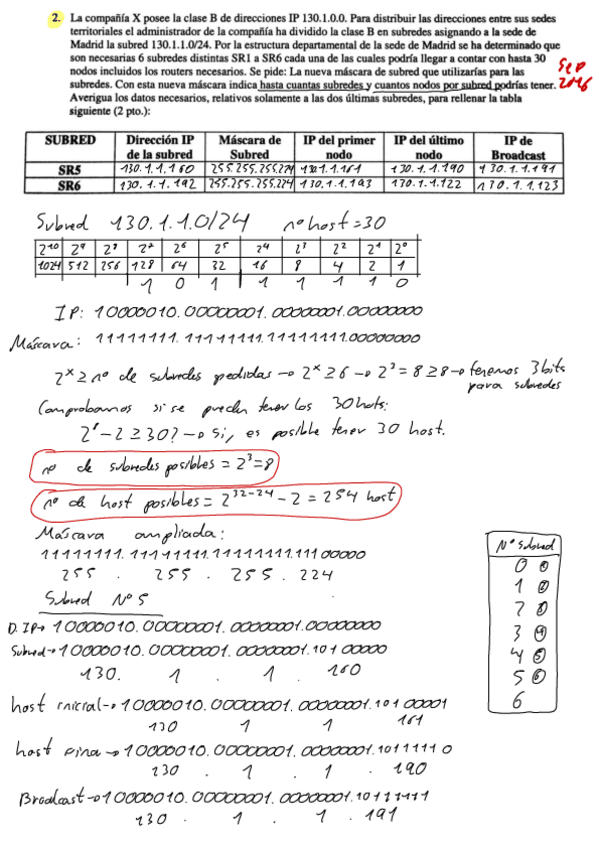 2. La compañía X posee la clase B de direcciones IP 130.1.0.0. Para distribuir las direcciones entre sus sedes
territoriales el administrador de la compañía ha dividido la clase B en subredes asignando a la sede de
Madrid la subred 130.1.1.0/24. Por la estructura departamental de la sede de Madrid se ha determinado que
son necesarias 6 subredes distintas SR1 a SR6 cada una de las cuales podría llegar a contar con hasta 30
nodos incluidos los routers necesarios. Se pide: La nueva máscara de subred que utilizarías para las
subredes. Con esta nueva máscara indica hasta cuantas subredes y cuantos nodos por subred podrías tener.
Averigua los datos necesarios, relativos solamente a las dos últimas subredes, para rellenar la tabla
siguiente (2 pto.):
Sep
2016
SUBRED Dirección IP de la subred Máscara de Subred IP del primer nodo IP del último nodo IP de Broadcast
SR5 130.1.1.160 255.255.255.224 130.1.1.161 130.1.1.190 130.1.1.191
SR6 130.1.1.192 255.255.255.224 130.1.1.193 130.1.1.122 130.1.1.123
Subred 130.1.1.0/24 nº host=30
2¹⁰ 2⁹ 2⁸ 2⁷ 2⁶ 2⁵ 2⁴ 2³ 2² 2¹ 2⁰
1024 512 256 128 64 32 16 8 4 2 1
1 0 1 1 1 1 1 0
IP: 10000010.00000001.00000001.00000000
Máscara: 11111111.11111111.11111111.00000000
2ˣ ≥ nº de subredes pedidas → 2ˣ ≥ 6 → 2³ = 8 ≥ 8 → tenemos 3 bits
para subredes
Comprobamos si se pueden tener los 30 hots:
-2 ≥ 30? → Si, es posible tener 30 host.
nº de subredes posibles = 2³=8
nº de host posibles = 2³²⁻²⁴ - 2 = 254 host
Máscara ampliada:
11111111.11111111.11111111.11100000
255 . 255 . 255 . 224
Nº Subred
0 ①
1 ②
2 ③
3 ④
4 ⑤
5 ⑥
6
Subred Nº 5
D. IP→ 10000010.00000001.00000001.00000000
Subred→ 10000010.00000001.00000001.10100000
130. 1 . 1 . 160
host inicial→ 10000010.00000001.00000001.10100001
130 1 1 161
host fina → 10000010.00000001.00000001.10111110
130 . 1 . 1 . 190
Broadcast→ 10000010.00000001.00000001.10111111
130 . 1 . 1 . 191